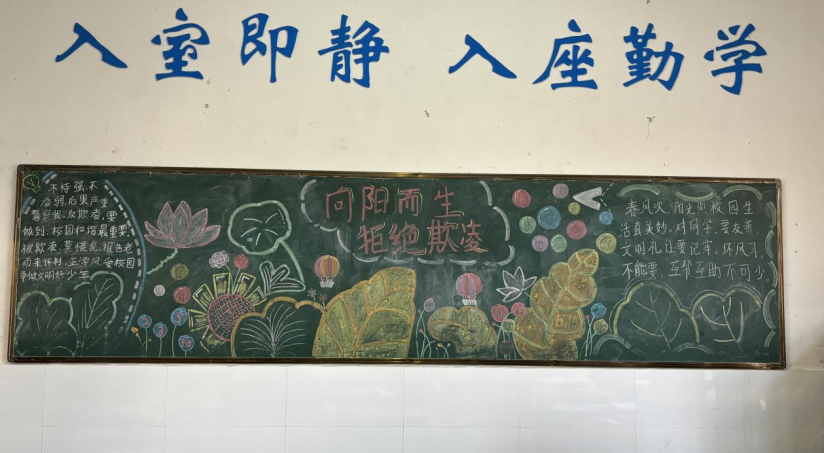 入室即静 入座勤学
向阳而生
拒绝欺凌
不恃强、不
凌弱,后果严重
警告我,反欺凌,要
做到,校园和谐最重要
被欺凌,莫慌乱,报告老
师来
正学风,爱校园
争做文明好少年
春风吹,阳光照,校园生
活真美妙,对同学,要友善
文明礼让要记牢,坏风习,
不能要,互帮互助不可少。